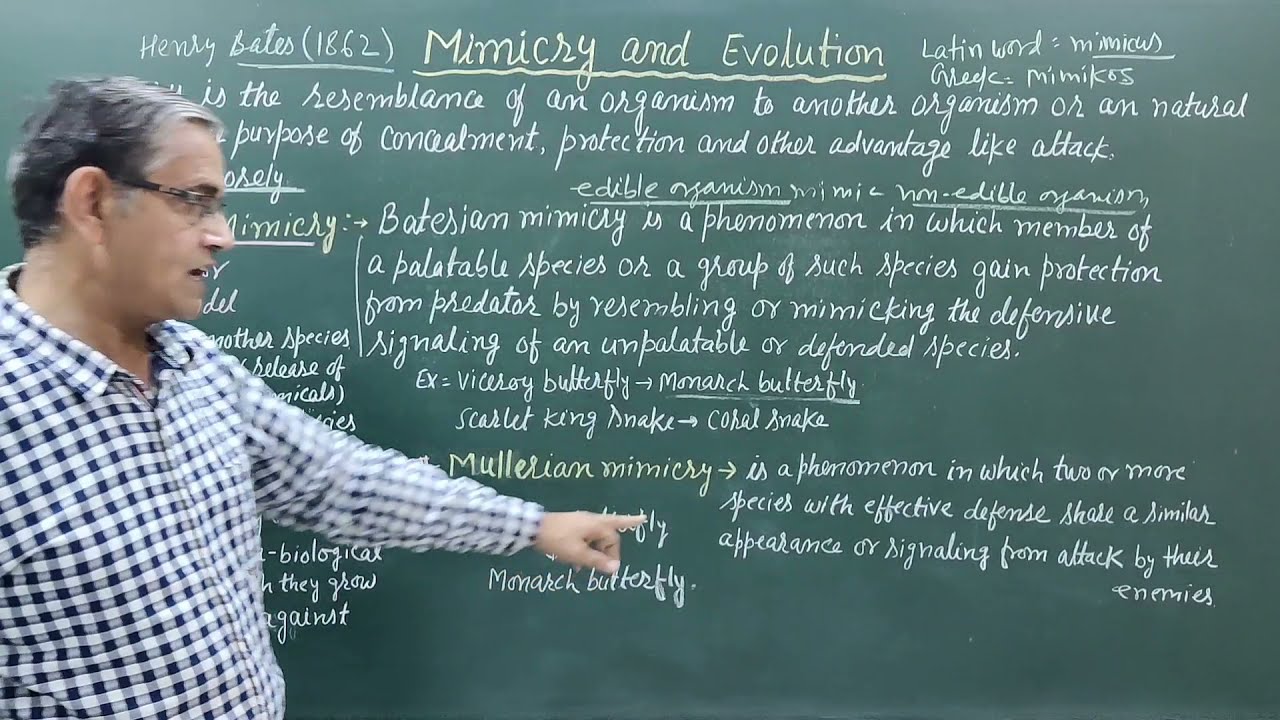 Henry Bates (1862) Mimicry and Evolution Latin word = mimicus
Greek = mimikos
is the resemblance of an organism to another organism or an natural
purpose of concealment, protection and other advantage like attack.
edible organism mimic non-edible organism
Mimicry :→ Batesian mimicry is a phenomenon in which member of
a palatable species or a group of such species gain protection
from predator by resembling or mimicking the defensive
signaling of an unpalatable or defended species.
Ex = Viceroy butterfly → Monarch butterfly
Scarlet king snake → coral snake
another species
(release of
Mullerian mimicry → is a phenomenon in which two or more
species with effective defense share a similar
appearance or signaling from attack by their
enemies.
Monarch butterfly.
-biological
they grow
against